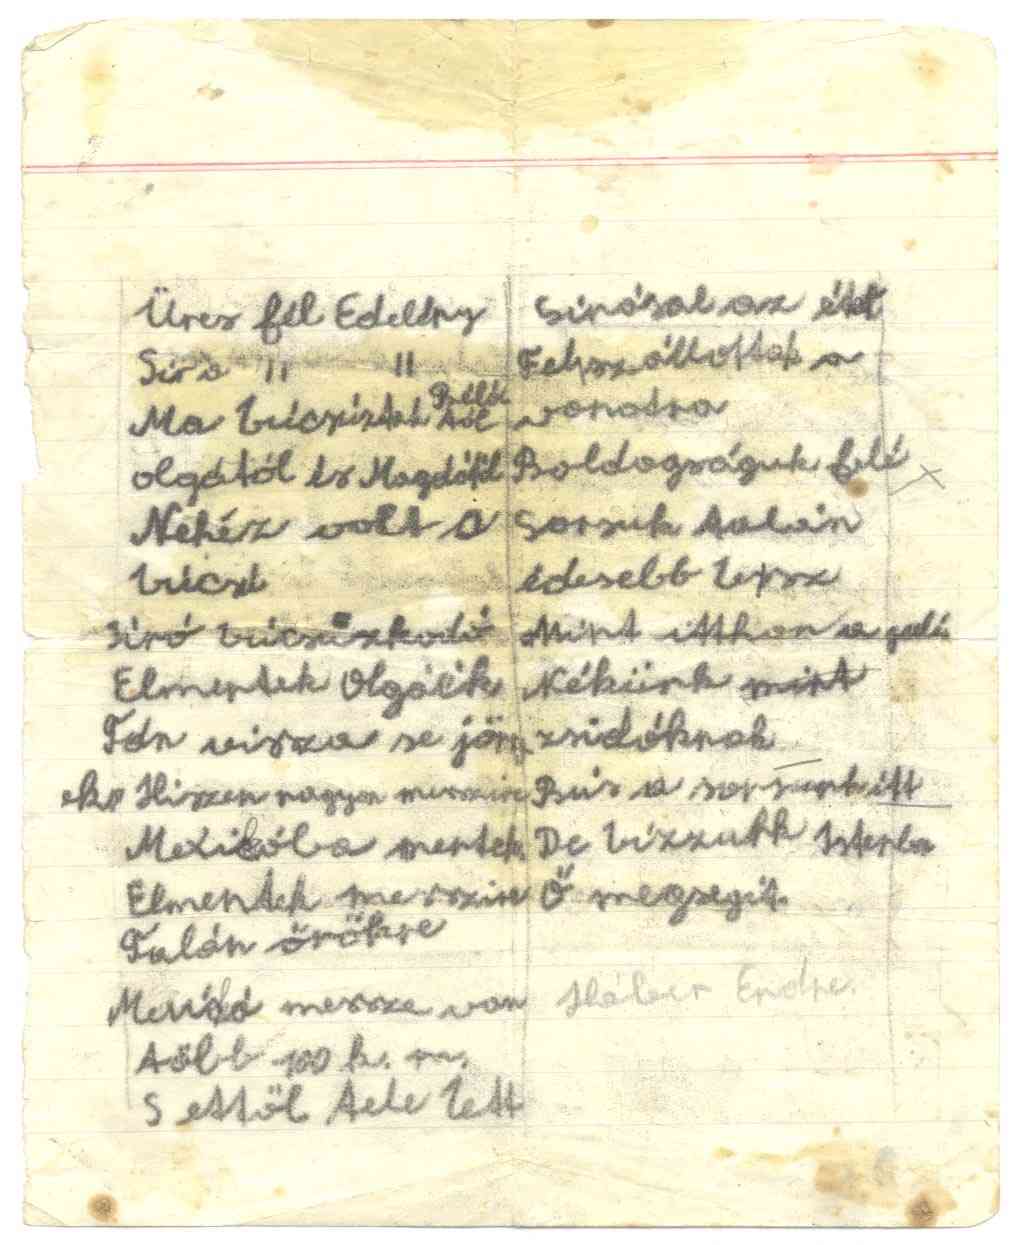 Üres fél Edelény
Siró " "
Ma búcsíztek
olgától és Magdától
Nehéz volt a
búcsi
siró búcsúzkodó
Elmentek Olgáék
Tán vissza se jön
ek. Hiszen nagyon messzire
Mexikóba mentek
Elmentek messzire
Talán örökre
messze van
több 100 k. m.
S ettől tele lett
Sirósal az étel
Felszállottak a
vonatra
Boldogságuk felé
Sorsuk talán
édesebb lessz
Mint itthon a
Nékünk mint
zsidóknak
Bús a sorsunk itt
De bízzukk Istenba
Ő megsegít.
Háber Endre.